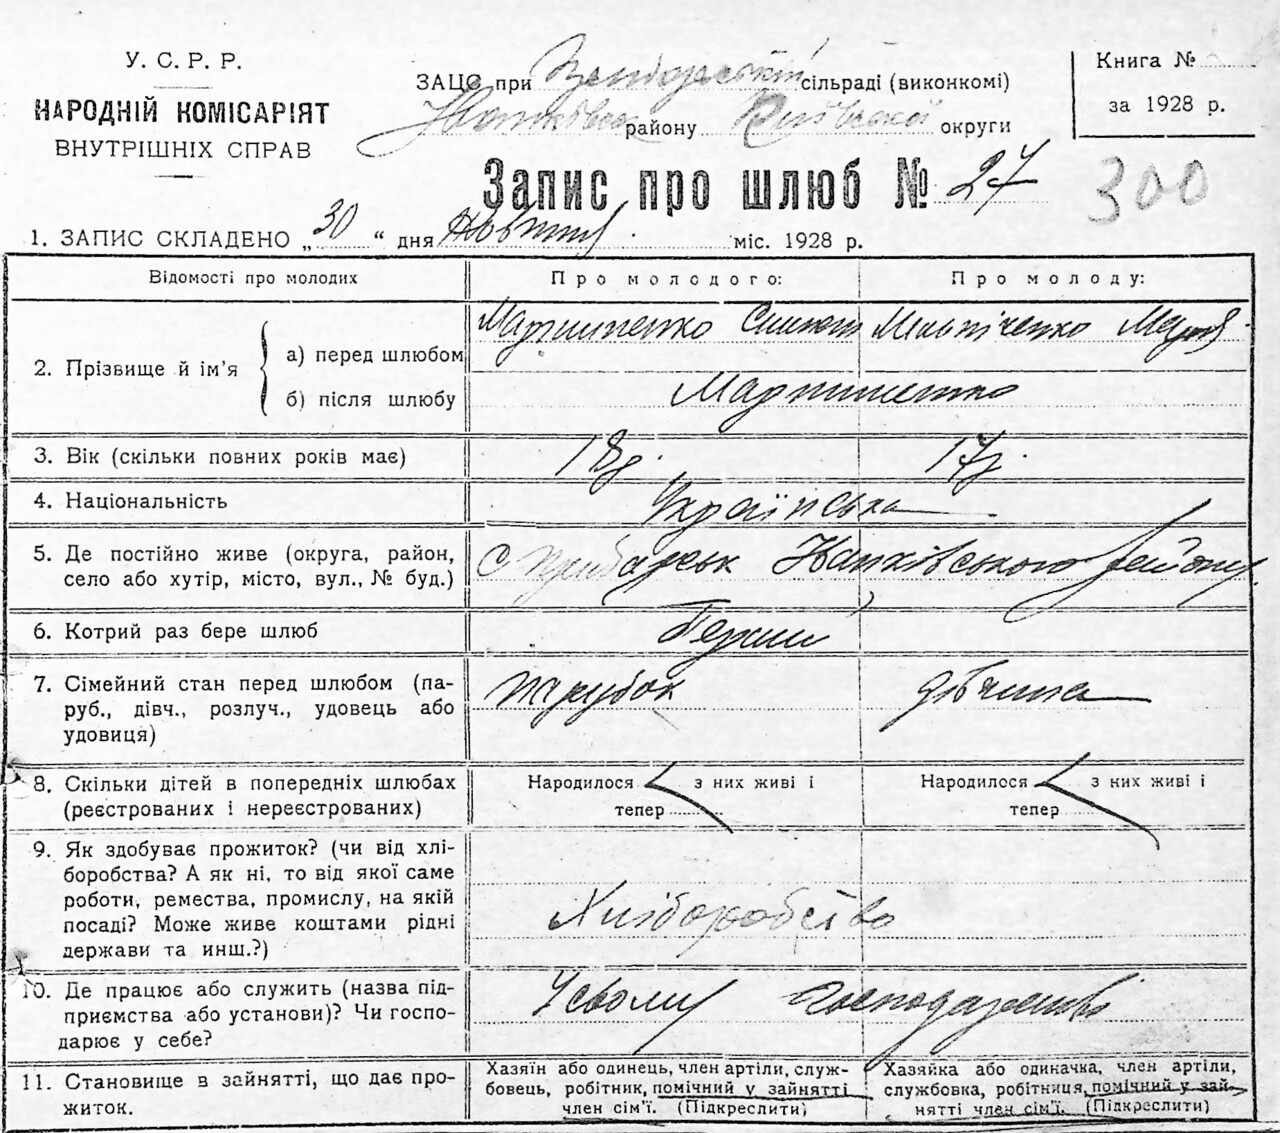 У. С. Р. Р.
НАРОДНІЙ КОМІСАРІЯТ
ВНУТРІШНІХ СПРАВ
ЗАЦС при сільраді (виконкомі)
Іванківськ району Київської округи
Книга №
за 1928 р.
Запис про шлюб № 27
300
1. ЗАПИС СКЛАДЕНО „30“ дня міс. 1928 р.
Відомості про молодих
Про молодого:
Про молоду:
2. Прізвище й ім'я
а) перед шлюбом
б) після шлюбу
Мартиненко
Мартиненко
3. Вік (скільки повних років має)
18р.
17р.
4. Національність
Українська
5. Де постійно живе (округа, район,
село або хутір, місто, вул., № буд.)
С Іванківського району
6. Котрий раз бере шлюб
Перший
7. Сімейний стан перед шлюбом (па-
руб., дівч., розлуч., удовець або
удовиця)
парубок
дівчина
8. Скільки дітей в попередніх шлюбах
(реєстрованих і нереєстрованих)
Народилося з них живі і
тепер
Народилося з них живі і
тепер
9. Як здобуває прожиток? (чи від хлі-
боробства? А як ні, то від якої саме
роботи, ремества, промислу, на якій
посаді? Може живе коштами рідні
держави та инш.?)
Хліборобство
10. Де працює або служить (назва під-
приємства або установи)? Чи госпо-
дарює у себе?
У своему господарстві
11. Становище в зайнятті, що дає про-
житок.
Хазяїн або одинець, член артілі, служ-
бовець, робітник, помічний у зайнятті
член сім'ї. (Підкреслити)
Хазяйка або одиначка, член артіли,
службовка, робітниця, помічний у зай-
нятті член сім'ї. (Підкреслити)